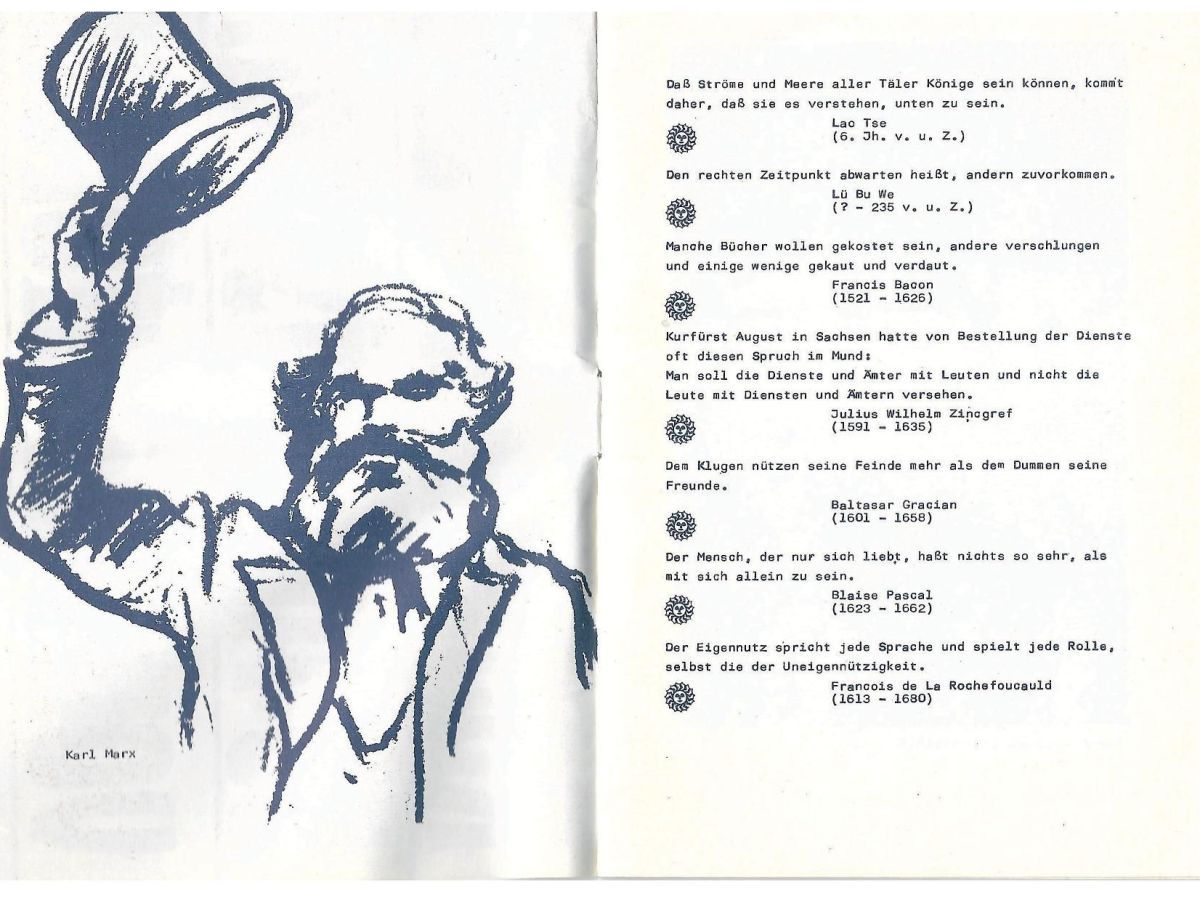 Karl Marx
Daß Ströme und Meere aller Täler Könige sein können, kommt
daher, daß sie es verstehen, unten zu sein.
Lao Tse
(6. Jh. v. u. Z.)
Den rechten Zeitpunkt abwarten heißt, andern zuvorkommen.
Lü Bu We
(? - 235 v. u. Z.)
Manche Bücher wollen gekostet sein, andere verschlungen
und einige wenige gekaut und verdaut.
Francis Bacon
(1521 - 1626)
Kurfürst August in Sachsen hatte von Bestellung der Dienste
oft diesen Spruch im Mund:
Man soll die Dienste und Ämter mit Leuten und nicht die
Leute mit Diensten und Ämtern versehen.
Julius Wilhelm Zincgref
(1591 - 1635)
Dem Klugen nützen seine Feinde mehr als dem Dummen seine
Freunde.
Baltasar Gracian
(1601 - 1658)
Der Mensch, der nur sich liebt, haßt nichts so sehr, als
mit sich allein zu sein.
Blaise Pascal
(1623 - 1662)
Der Eigennutz spricht jede Sprache und spielt jede Rolle,
selbst die der Uneigennützigkeit.
Francois de La Rochefoucauld
(1613 - 1680)